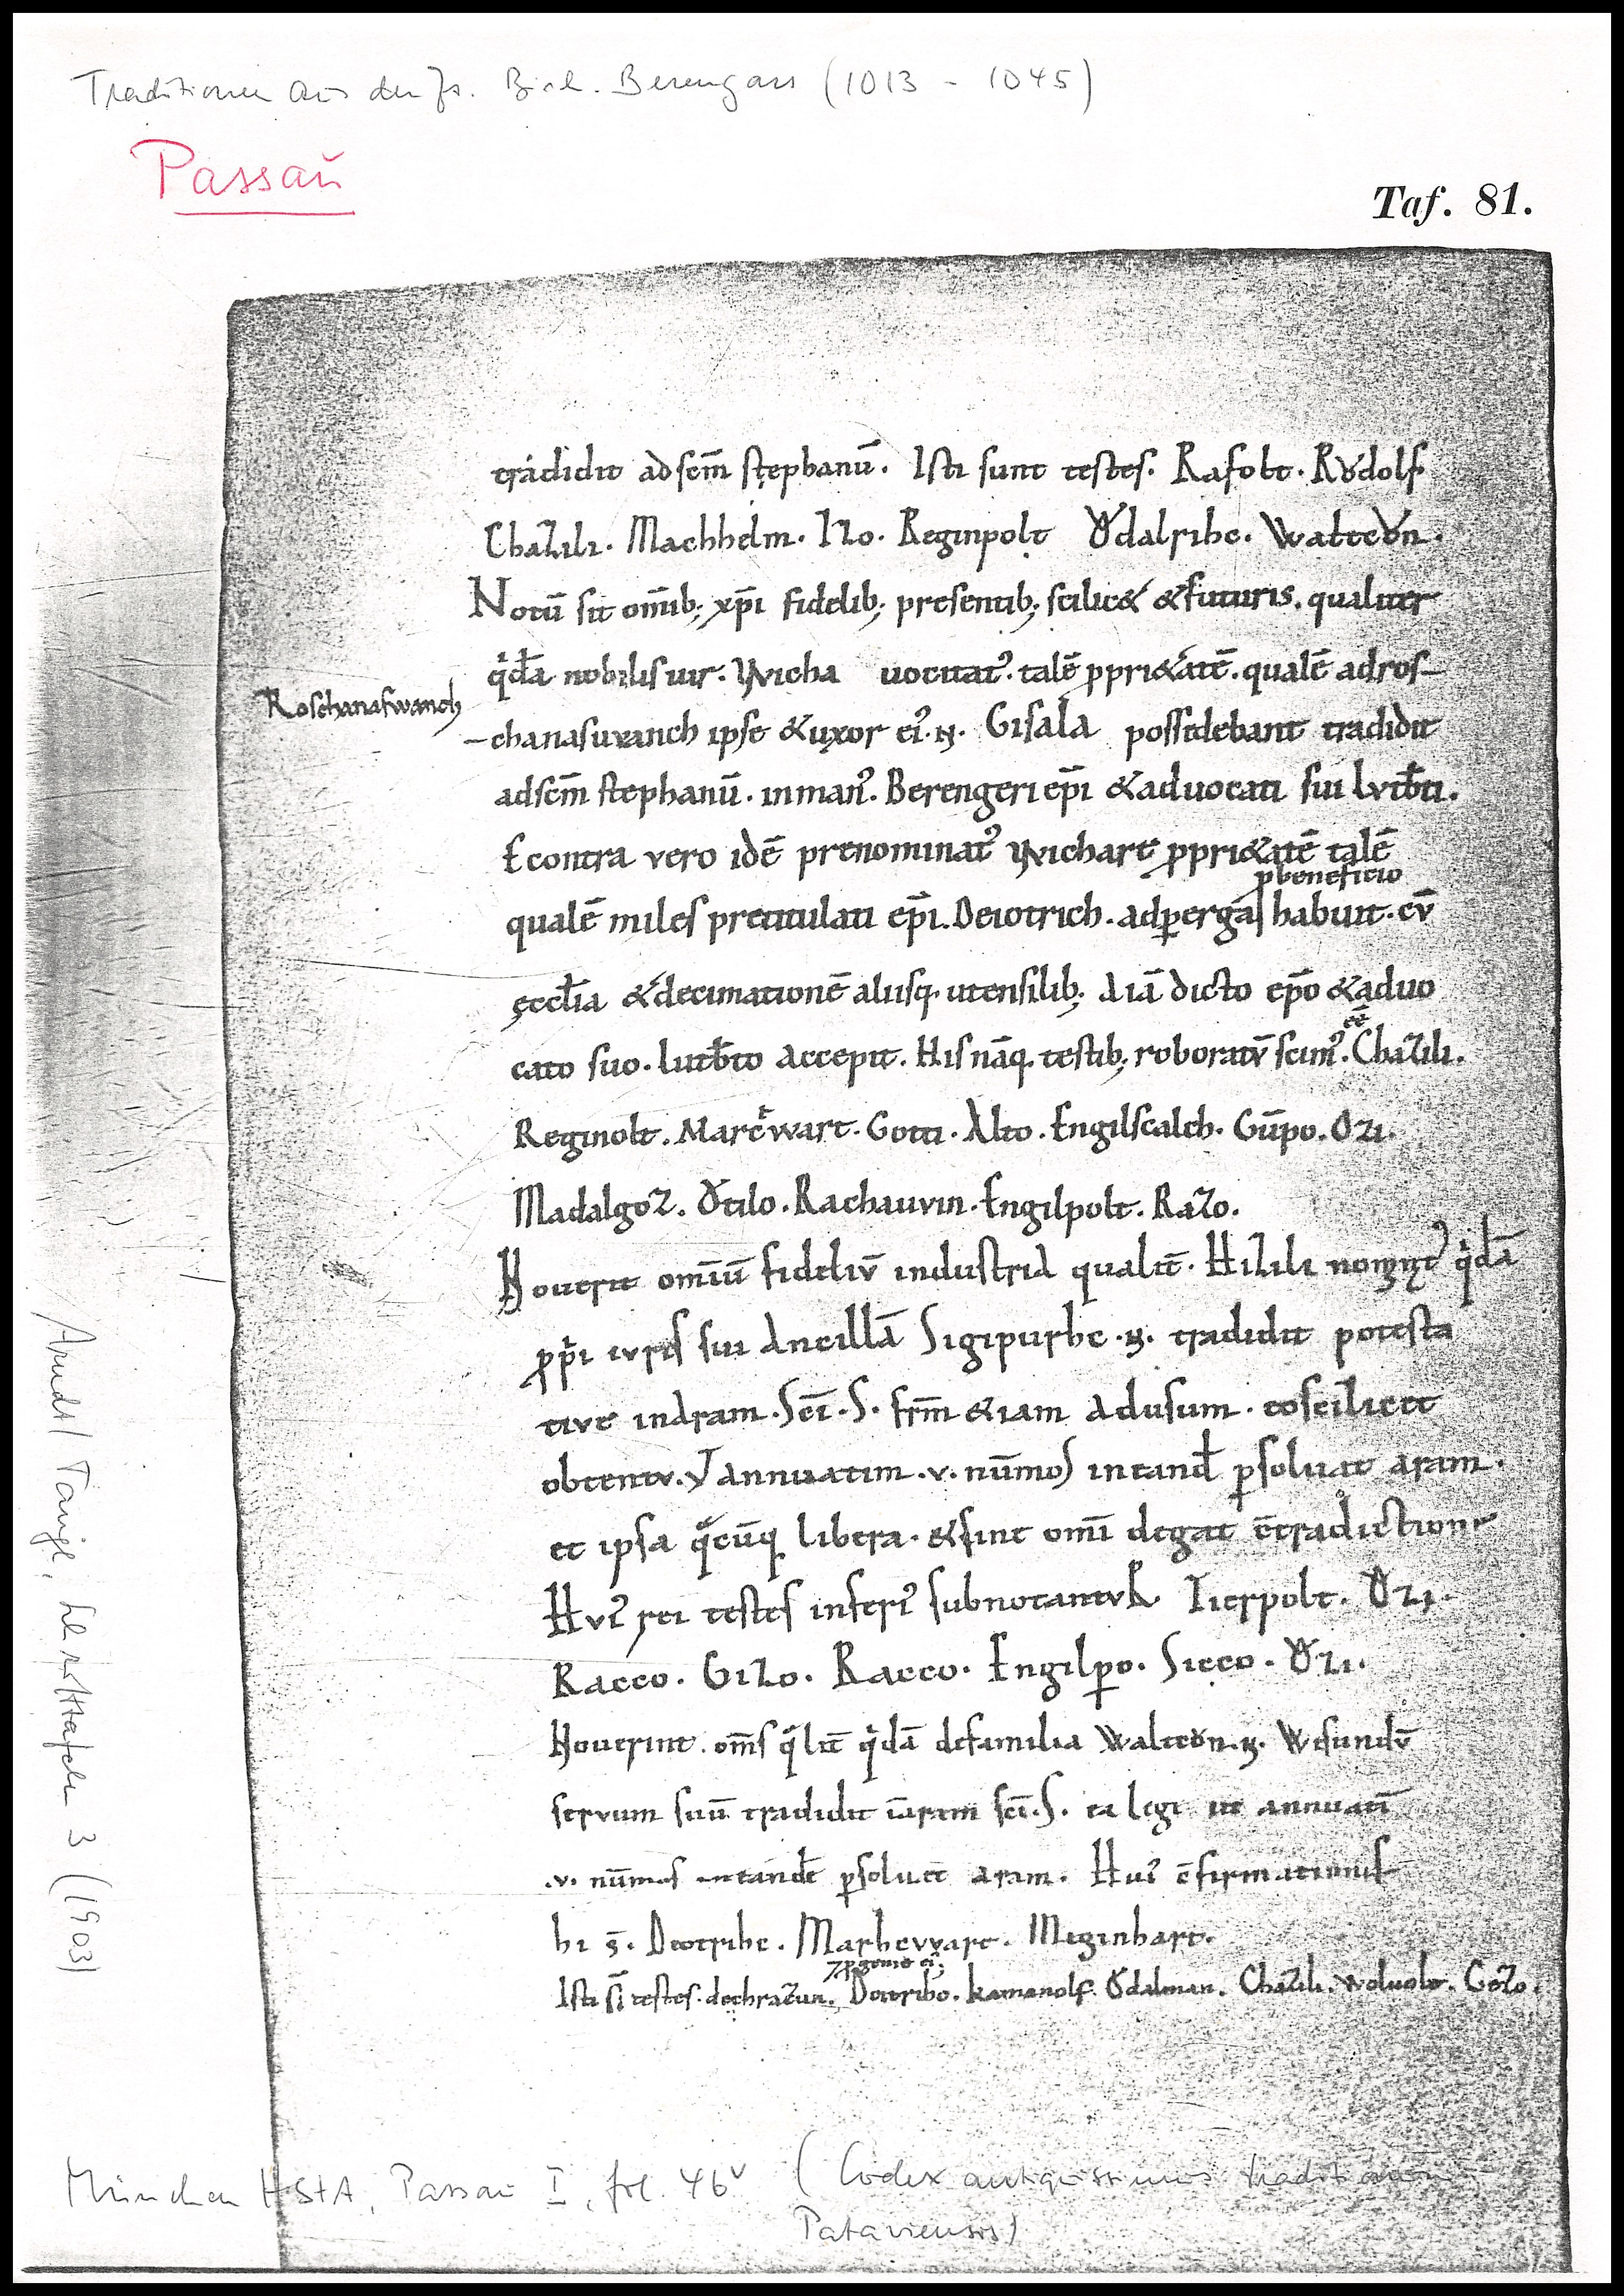 Traditionen aus der Zt. Bisch. Berengars (1013 - 1045)
Passau
Taf. 81.
tradidit ad scm̄ stephanū. Isti sunt testes. Rafolt. Růdolf.
Chazili. Machhelm. Izo. Reginpolt Ůdalrihc. Waltcůn.
Notū sit om̄ib; xp̄i fidelib; presentib; scilic& &futuris. qualiter
qͥdā nobilis uir. Wicha uocitatꝰ. talē ꝓpri&atē. qualē adros-
Roschanaswanch
-chanasuuanch ipse &uxor eiꝰ .N. Gisala possidebant tradidit
adscm̄ stephanū. inmanꝰ. Berengeri ep̄i &aduocati sui lvtƀti.
Econtra vero idē prenominatꝰ Wichart ꝓpri&atē talē
ꝓbeneficio
qualē miles pretitulati ep̄i. Deiotrich. adꝑergā habuit. cv̄
ęcclīa &decimationē aliisq. utensilib; A iā dicto ep̄o &aduo
ēē
cato suo. lutƀto accepit. His nāq. testib; roboratv̄ scimꝰ. Chazili.
Reginolt. Marcͭwart. Gotti. Alto. Engilscalch. Gūpo. Ozi.
Madalgoz. Ůtilo. Rachauvin. Engilpolt. Razo.
Nouerit om̄iū fideliv̄ industria qualit̄. Hizili nomine qͥdā
ꝓpͥi ivris sui Ancillā Sigipurhc .N. tradidit potesta
tive indram. Scī. S. frm̄ &iam adusum. eoscilicet
obtentv. ꝟ annuatim .v. nūmos intand̄ ꝑsoluat aram.
et ipsa qͣcūq libera. &sint om̄i degat c̄tradictione
Hviꝰ rei testes inferiꝰ subnotantvR Iierpolt. Ůzi.
Racco. Gizo. Racco. Engilꝑo. Sicco. Ůzi.
Nouerint. om̄s qͣlit̄ qͥdā defamilia Waltcůn .N. Wisundv̄
servum suū tradidit īaram scī. S. ea legi ut annuatī
.v. nūmos intandē ꝑsoluet aram. Huiꝰ c̄firmationis
hi s̄. Deotrihc. Marhcvvart. Meginhart.
Isti s̄ testes. dechrazun. Deotriho. kamanolf. Ůdalman. Chazili. Woluolt. Gozo.
Arndt / Tangl, Schrifttafeln 3 (1903)
München HStA, Passau I, fol. 46v (Codex antiquissimus traditionum
Pataviensis)